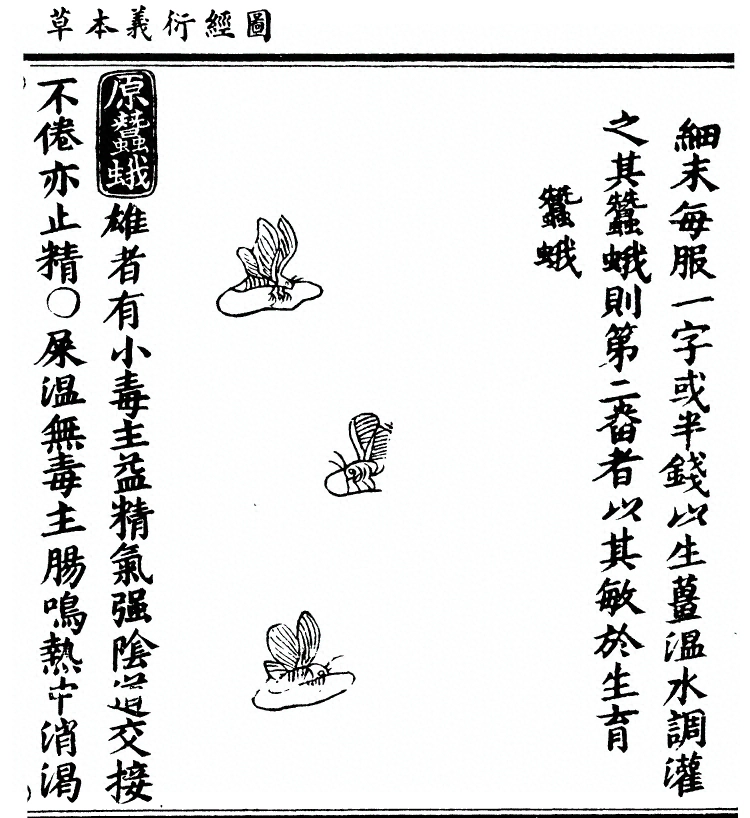 圖經衍義本草
細末每服一字或半錢以生薑溫水調灌
之其蠶蛾則第二番者以其敏於生育
蠶蛾
原蠶蛾雄者有小毒主益精氣强陰道交接
不倦亦止精〇屎溫無毒主腸鳴熱中消渴